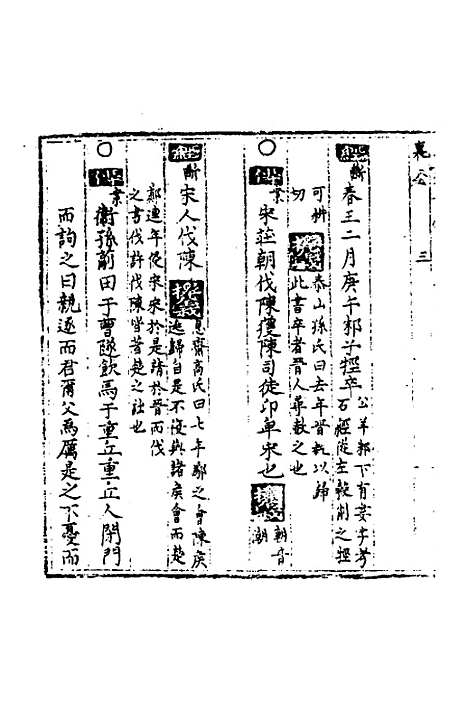 襄公 三
經 斷 春王二月庚午邾子牼卒 公羊邾下有婁字考
石經從左穀削之牼
可拼
切 泰山孫氏曰去年晉執以歸
此書卒者晉人尋赦之也
○ 傳 案 宋莊朝伐陳獲陳司徒卬卑宋也 朝音
朝
經 斷 宋人伐陳 息齋高氏曰七年鄬之會陳侯
逃歸自是不復與諸侯會而楚
鄭連年侵宋宋於是請於晉而伐
之書伐許伐陳皆著楚之詘也
○ 傳 案 衛孫蒯田于曹隧飲馬于重丘重丘人閉門
而詢之曰親逐而君爾父為厲是之不憂而